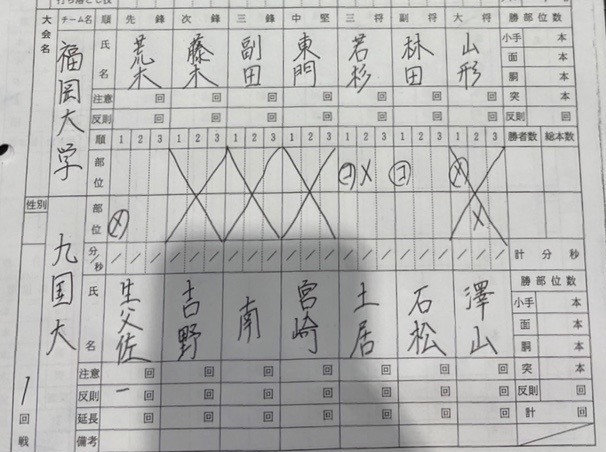 大会名 チーム名 順 先鋒 次鋒 三鋒 中堅 三将 副将 大将 勝部位数
福岡大学 氏名 荒木 藤木 副田 東門 若杉 林田 山形 小手 本
面 本
胴 本
注意 回 回 回 回 回 回 回 突 本
反則 回 回 回 回 回 回 回 反則 回
順 1 2 3 1 2 3 1 2 3 1 2 3 1 2 3 1 2 3 1 2 3 勝者数 総本数
部位 コ メ コ メ
性別 部位 メ メ
分/秒 / / / / / / / / / / / / / / / / / / / / / 計 分 秒
九国大 氏名 生父佐 吉野 南 宮崎 土居 石松 澤山 勝部位数
小手 本
面 本
胴 本
注意 回 回 回 回 回 回 回 突 本
1回戦 反則 一 回 回 回 回 回 回 回 反則 回
延長 回 回 回 回 回 回 回 計 回
備考